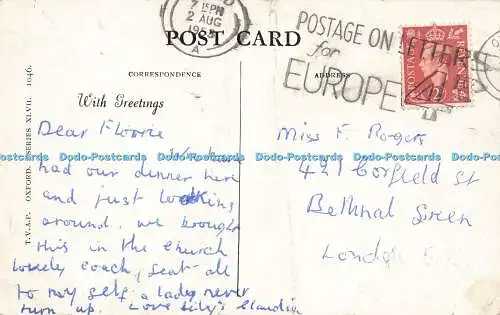 7 15 PN
2 AUG
195
A
POSTAGE ON LETTERS
for
EUROPE
POSTAGE
REVENUE
POST CARD
CORRESPONDENCE
ADDRESS
With Greetings
T.V.A.P. OXFORD. SERIES XLVII. 1046.
Dear Florrie
We have
had our dinner here
and just looking
around. we brought
this in the Church
lovely coach, seat all
to my self a lady never
turn up. Love Lily's
Miss F. Rogers
421 Corfield St
Bethnal Green
London
Dodo-Postcards Dodo-Postcards Dodo-Postcards Dodo-Postcards Dodo-Postcards
Dodo-Postcards Dodo-Postcards Dodo-Postcards Dodo-Postcards